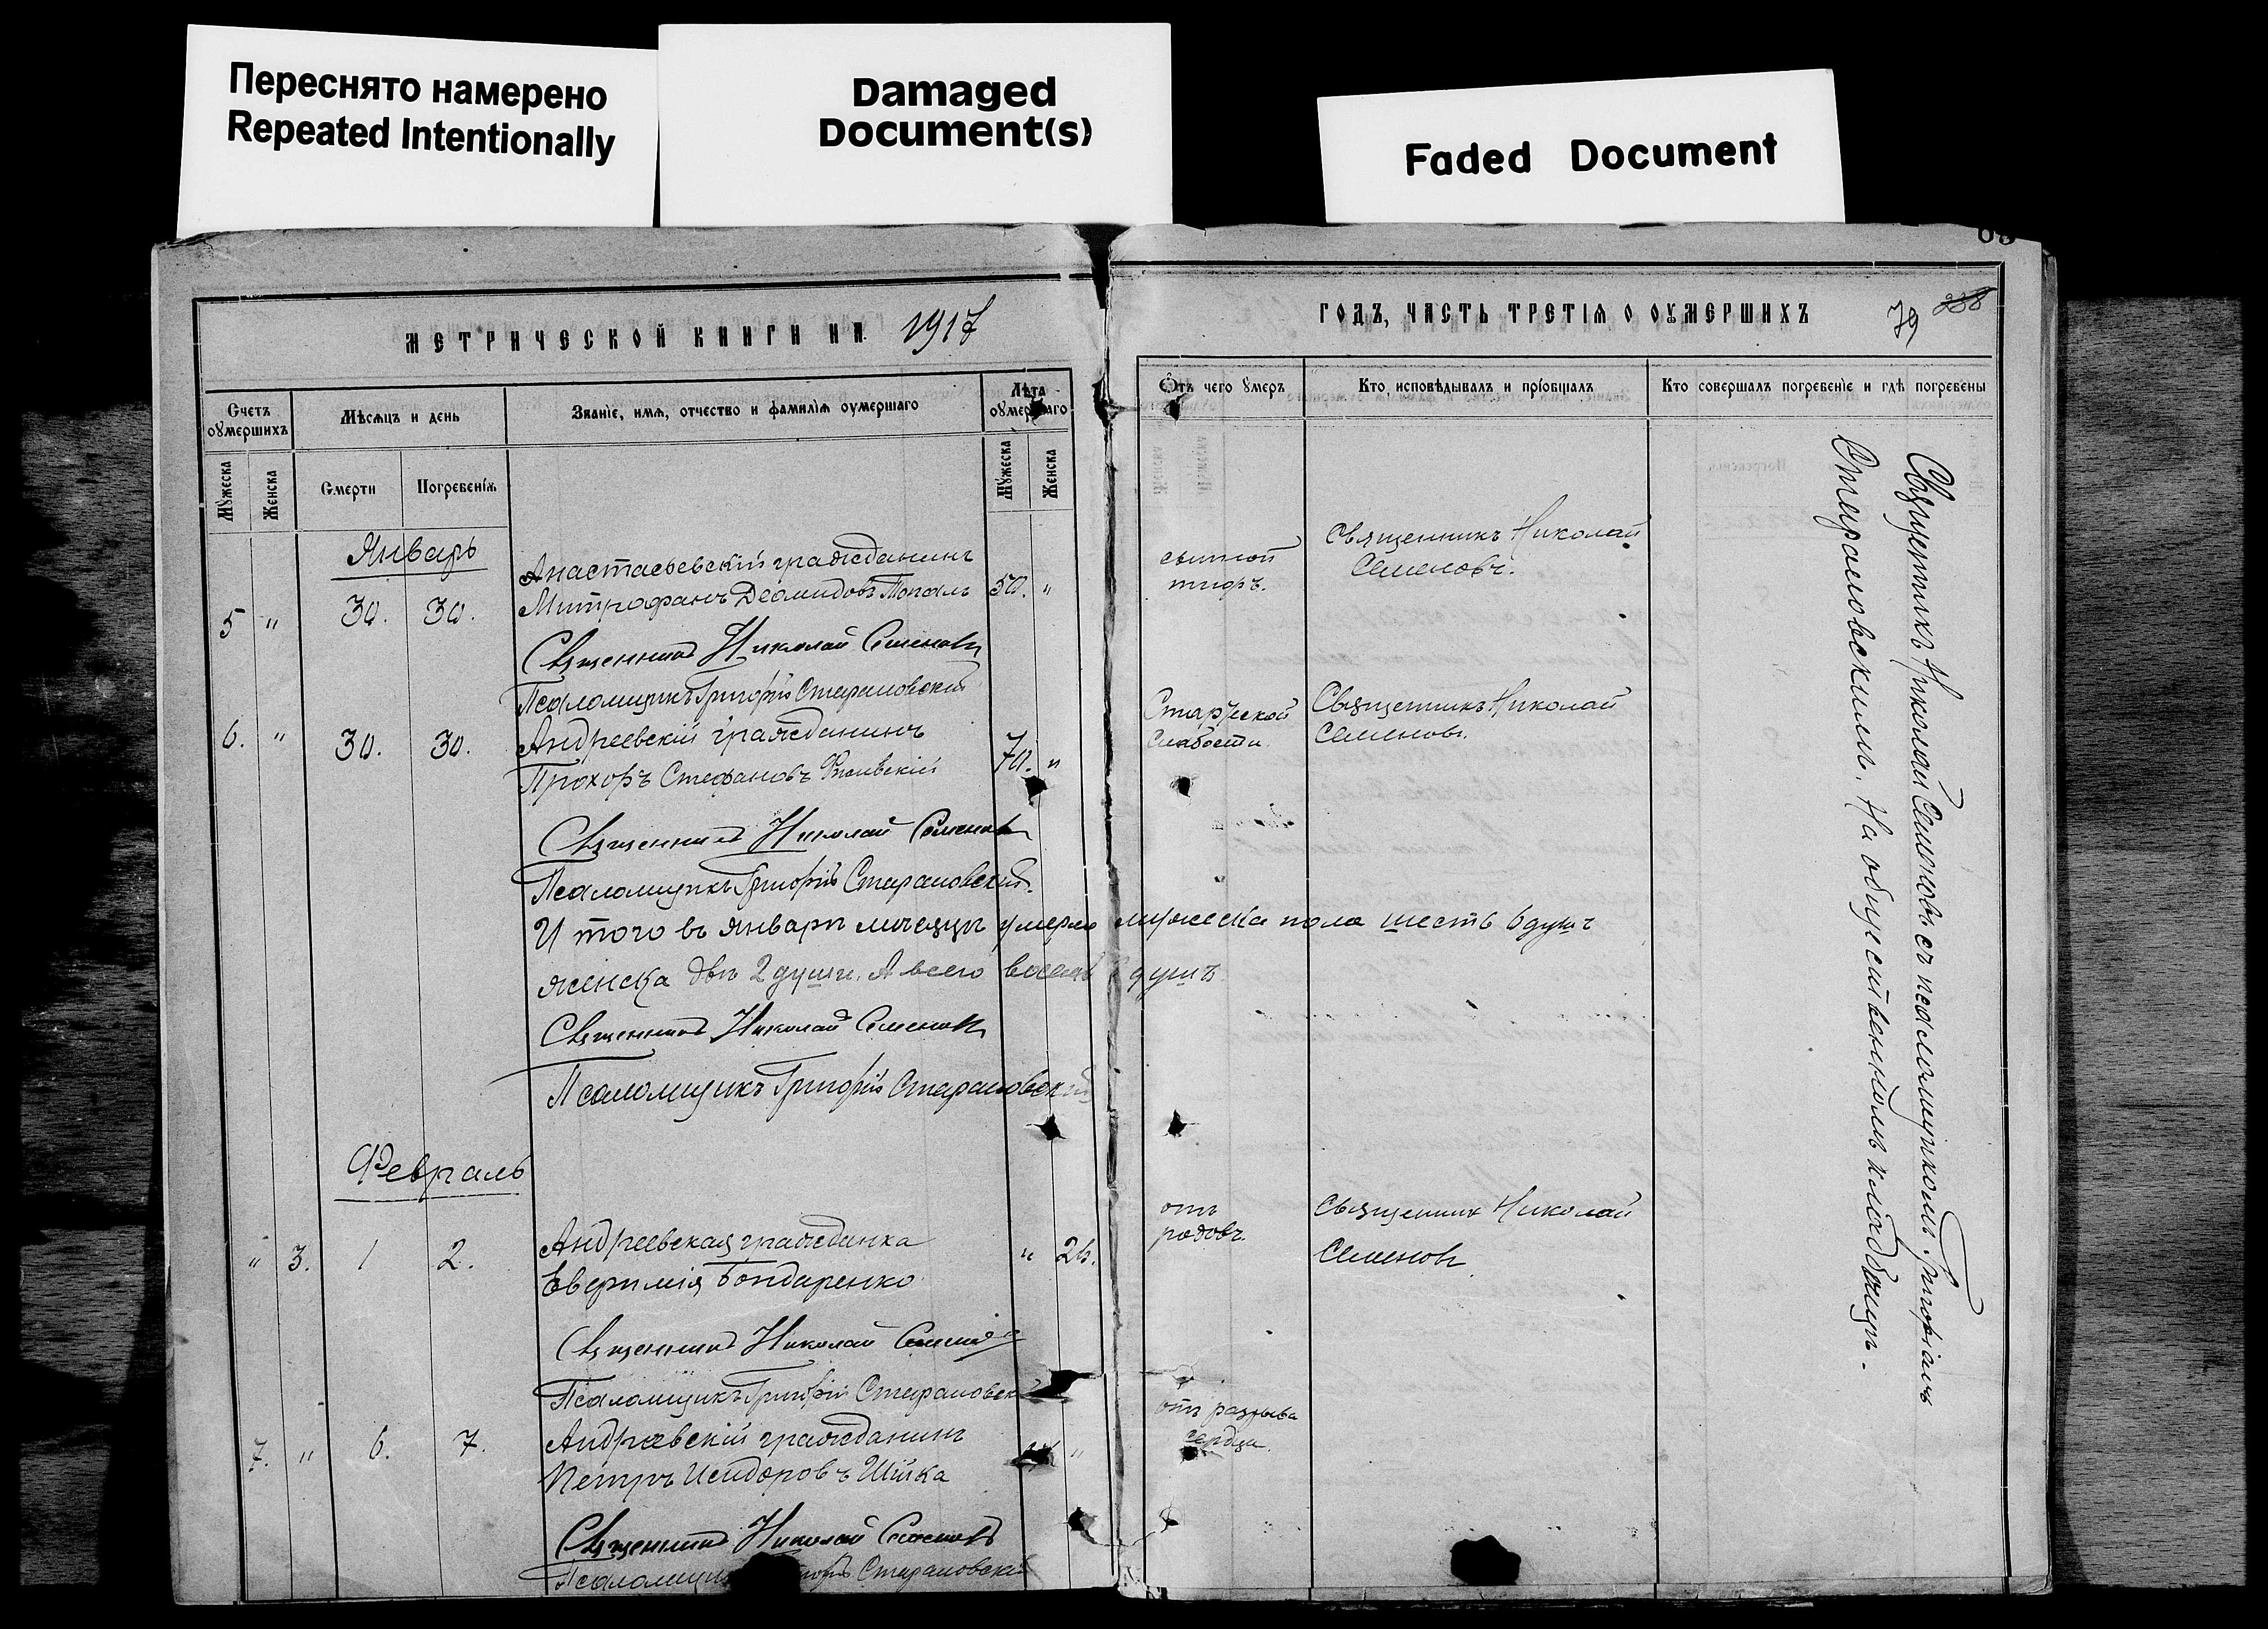 Переснято намерено
Repeated Intentionally
Damaged
Document(s)
Faded Document
МЕТРИЧЕСКОЙ КНИГИ НА 1917
ГОДЪ, ЧАСТЬ ТРЕТІѦ О ОУМЕРШИХЪ
79
238
Счетъ оумершихъ
Мѣсѧцъ и день
Званіе, имѧ, отчество и фамиліѧ оумершаго
Лѣта оумершаго
Мужеска
Женска
Смерти
Погребеніѧ
Мужеска
Женска
Отъ чего умеръ
Кто исповѣдывалъ и пріобщалъ
Кто совершалъ погребеніе и гдѣ погребены
Январь
5 " 30. 30.
Анастасьевскій гражданинъ
Митрофанъ Деомидовъ Топалъ 50. "
Священникъ Николай Семеновъ
Псаломщикъ Григорій Стирановскій
сыпной
тифъ.
Священникъ Николай
Семеновъ.
6. " 30. 30.
Андреевскій гражданинъ
Прохоръ Стефановъ 70. "
Священникъ Николай Семеновъ
Псаломщикъ Григорій Стирановскій.
Старческой
слабости.
Священникъ Николай
Семеновъ.
И того въ январѣ мѣсяцѣ умерло мужеска пола шесть 6 душъ
женска двѣ 2 души. А всего восемь 8 душъ
Священникъ Николай Семеновъ
Псаломщикъ Григорій Стирановскій
Февраль
" 3. 1 2.
Андреевская гражданка
Евфимія Бондаренко " 26.
Священникъ Николай Семеновъ
Псаломщикъ Григорій Стирановскій
отъ
родовъ.
Священникъ Николай
Семеновъ.
7. " 6. 7.
Андреевскій гражданинъ
Петръ Исидоровъ Шійка "
Священникъ Николай Семеновъ
Псаломщикъ Стирановскій
отъ разрыва
сердца.
Священникъ Николай Семеновъ съ псаломщикомъ Григоріемъ
Стирановскимъ. На общественномъ кладбищѣ.